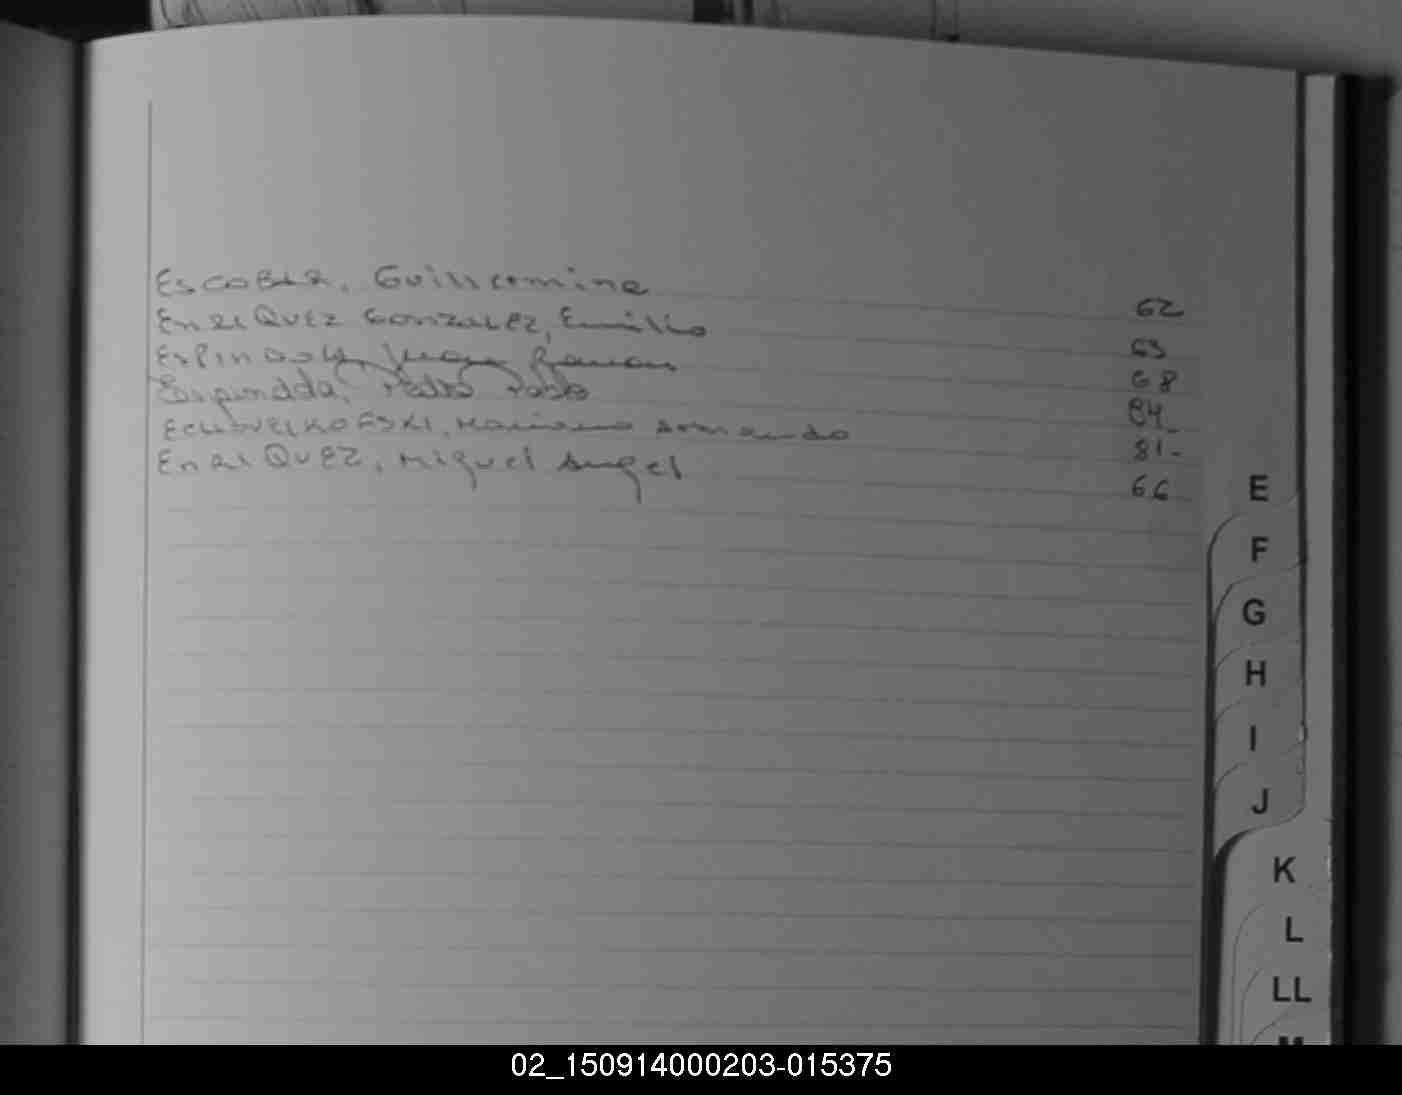 ESCOBAR, Guillermina 62
EnRIQUEZ GONZALEZ, Emilio 63
ESPINDOLA, Juan Ramon 68
Espindola, Pedro Pablo 84_
Mariano Armando 81-
EnRIQUEZ, Miguel Angel 66
E
F
G
H
I
J
K
L
LL
M
02_150914000203-015375